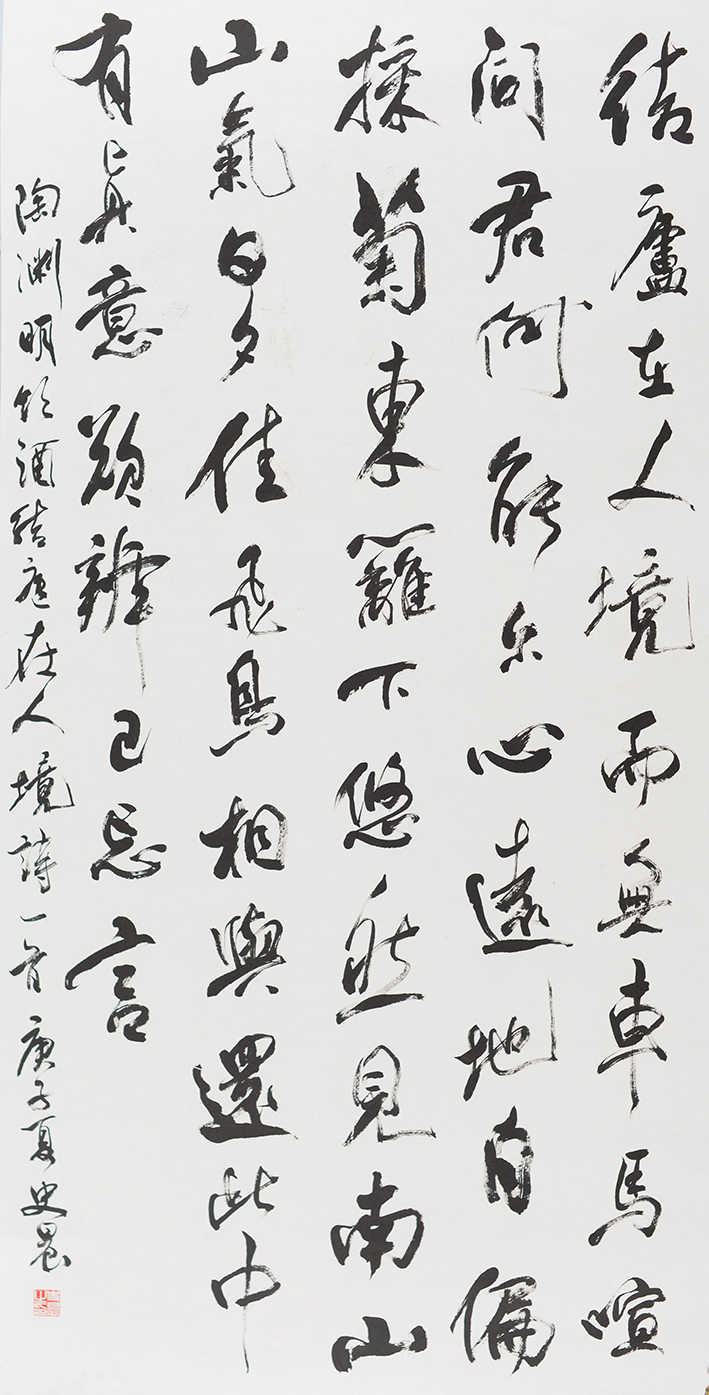 結廬在人境而無車馬喧
問君何能尔心遠地自偏
採菊東籬下悠然見南山
山氣日夕佳飛鳥相與還此中
有眞意欲辨已忘言
陶淵明飲酒結廬在人境詩一首庚子夏史晨